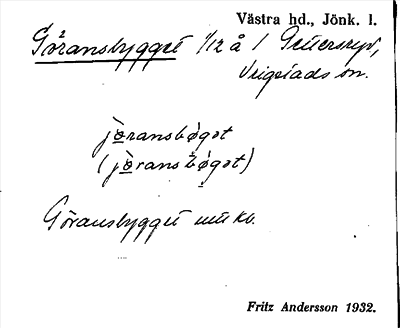 Västra hd., Jönk. l.
Göransbygget 1/12 å 1
Vrigstads sn.
jöransbøgət
(jöransbøgət)
Göransbygget
Fritz Andersson 1932.